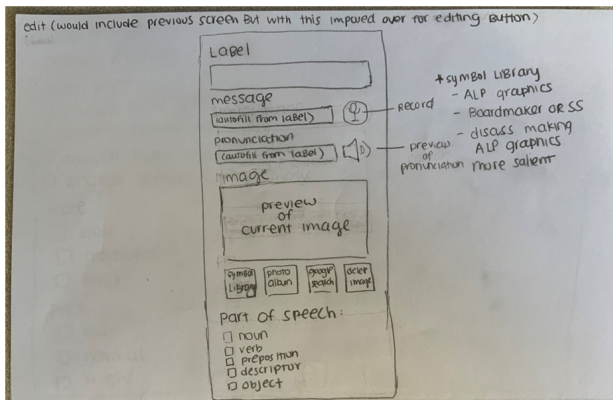 edit (would include previous screen But with this impared over for editing Button)
Label
message
(autofill from label)
Record
pronunciation
(autofill from label)
preview
of
pronunciation
image
preview
of
current image
symbol
Library
photo
album
google
search
delete
image
Part of speech:
noun
verb
preposition
descriptor
object
*symbol LIBRARY
- ALP graphics
- Boardmaker OR SS
- discuss making
ALP graphics
more salient